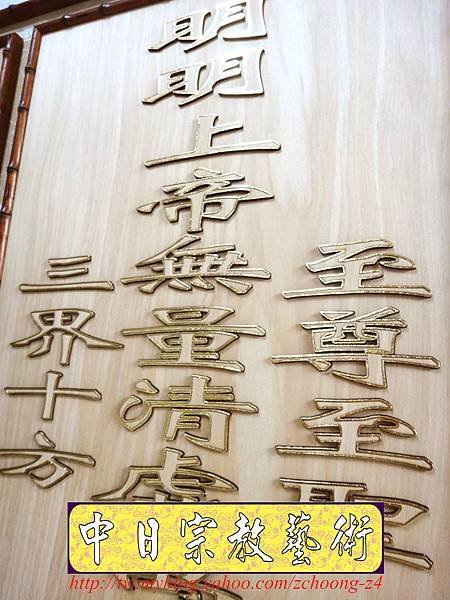 至尊至聖
明明上帝無量清虛
三界十方
中日宗教藝術
http://tw.myblog.yahoo.com/zchoong-z4